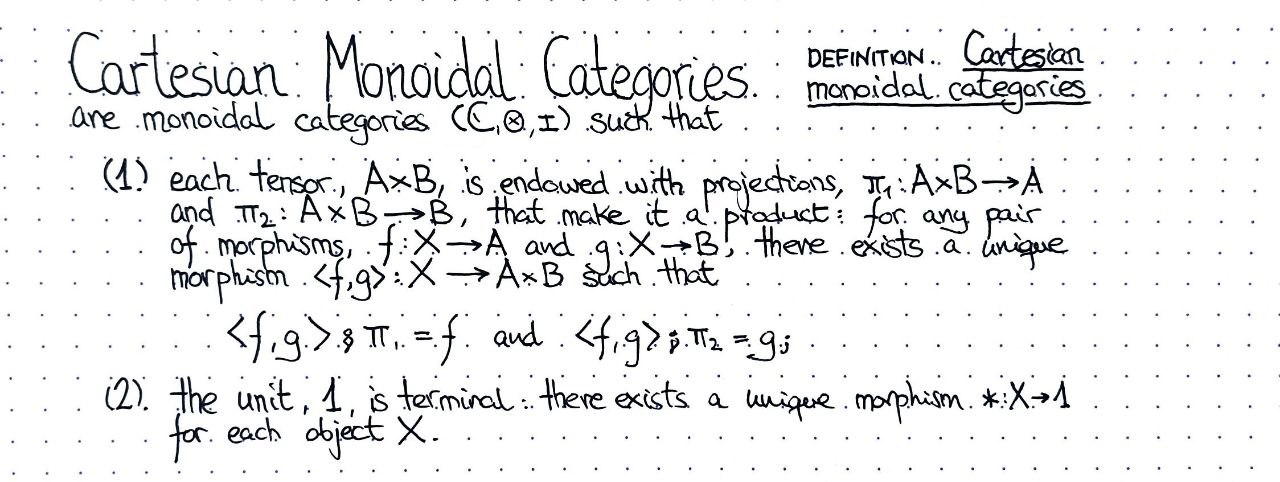 Cartesian Monoidal Categories.
DEFINITION. Cartesian
monoidal categories
are monoidal categories (ℂ,⊗,I) such that
(1) each tensor, A×B, is endowed with projections, π₁: A×B→A
and π₂: A×B→B, that make it a product: for any pair
of morphisms, f: X→A and g: X→B, there exists a unique
morphism <f,g>: X→A×B such that
<f,g>⨾π₁ = f and <f,g>⨾π₂ = g;
(2) the unit, 1, is terminal: there exists a unique morphism *: X→1
for each object X.